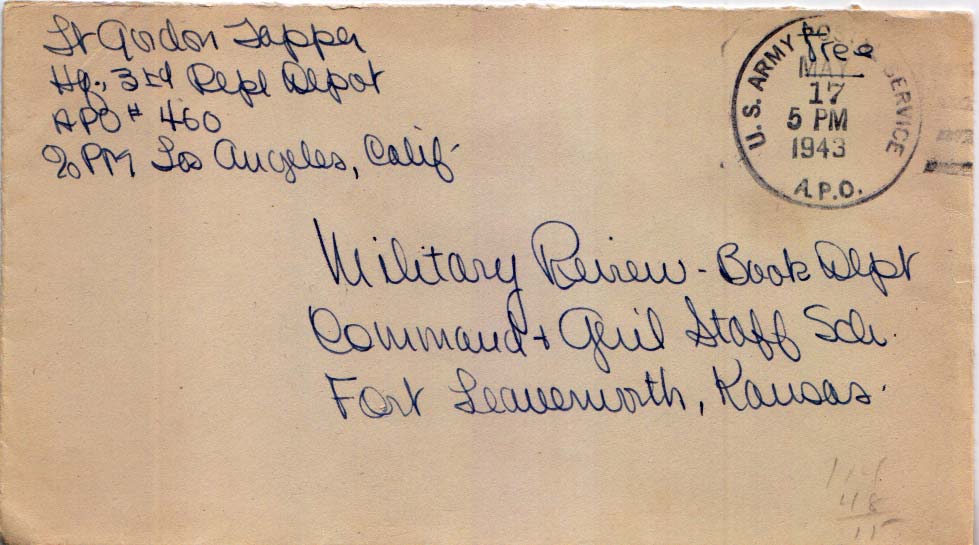 Lt Gordon Tapper
Hq., 3rd Repl Depot
APO # 460
℅ PM Los Angeles, Calif.
Free
U. S. ARMY POSTAL SERVICE
MAY
17
5 PM
1943
A.P.O.
Military Review - Book Dept
Command + Gen'l Staff Sch.
Fort Leavenworth, Kansas.
48